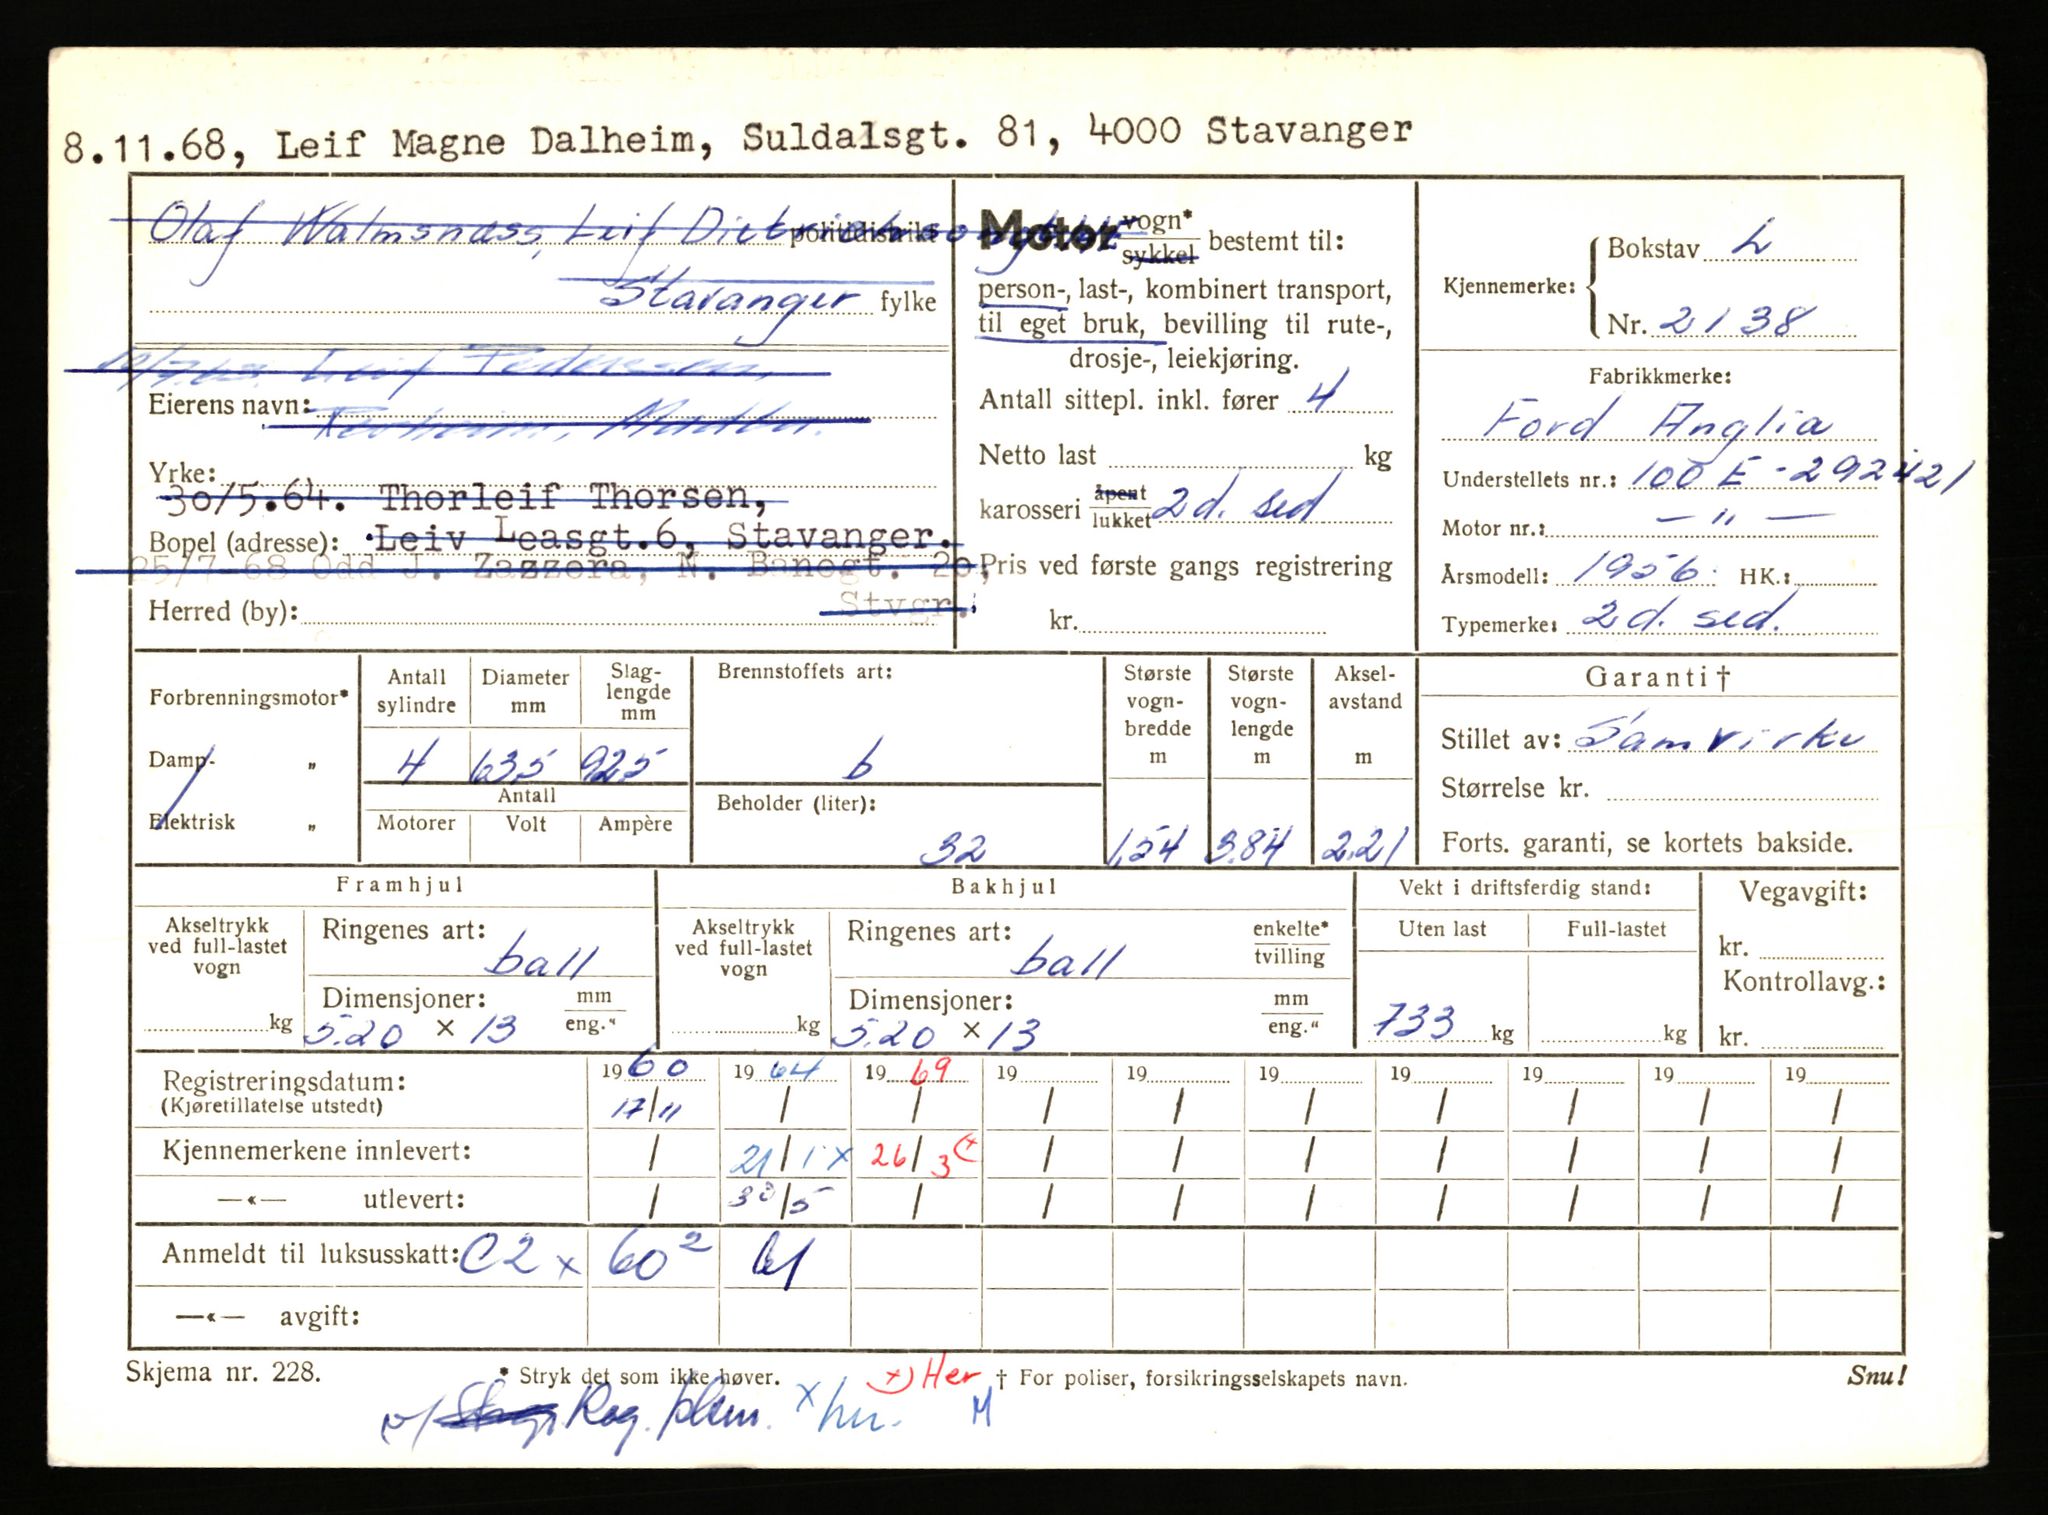 8.11.68, Leif Magne Dalheim, Suldalsgt. 81, 4000 Stavanger
Olaf Walmsnæss, Leif politidistrikt
Stavanger fylke
Leif Pedersen,
Eierens navn:
Yrke:
30/5.64. Thorleif Thorsen,
Bopel (adresse): Leiv Leasgt.6, Stavanger.
25/7-68 Odd J. Zazzera, N. Banegt. 20,
Stvgr.
Herred (by):
Motor vogn* sykkel bestemt til:
person-, last-, kombinert transport,
til eget bruk, bevilling til rute-,
drosje-, leiekjøring.
Antall sittepl. inkl. fører 4
Netto last kg
karosseri åpent lukket 2d. sed
Pris ved første gangs registrering
kr.
Kjennemerke: Bokstav L
Nr. 2138
Fabrikkmerke:
Ford Anglia
Understellets nr.: 100 E - 292421
Motor nr.: — " —
Årsmodell: 1956. HK.:
Typemerke: 2d. sed.
Forbrenningsmotor*
Damp- „
Elektrisk „
Antall sylindre 4
Diameter mm 635
Slag-lengde mm 925
Antall
Motorer Volt Ampère
Brennstoffets art: b
Beholder (liter): 32
Største vogn-bredde m 1,54
Største vogn-lengde m 3.84
Aksel-avstand m 2.21
Garanti †
Stillet av: Samvirke
Størrelse kr.
Forts. garanti, se kortets bakside.
Framhjul
Akseltrykk ved full-lastet vogn kg
Ringenes art: ball
Dimensjoner: mm eng."
5.20 × 13
Bakhjul
Akseltrykk ved full-lastet vogn kg
Ringenes art: enkelte* tvilling
ball
Dimensjoner: mm eng."
5.20 × 13
Vekt i driftsferdig stand:
Uten last Full-lastet
733 kg kg
Vegavgift:
kr.
Kontrollavg.:
kr.
Registreringsdatum: 1960 1964 1969 19 19 19 19 19 19 19
(Kjøretillatelse utstedt) 17/11 / / / / / / / / /
Kjennemerkene innlevert: / 21/1 x 26/3 (x / / / / / / /
—«— utlevert: / 30/5 / / / / / / / /
Anmeldt til luksusskatt: C2 x 60²
—«— avgift:
Skjema nr. 228. * Stryk det som ikke høver. x) Her † For poliser, forsikringsselskapets navn. Snu!
Rog. x M